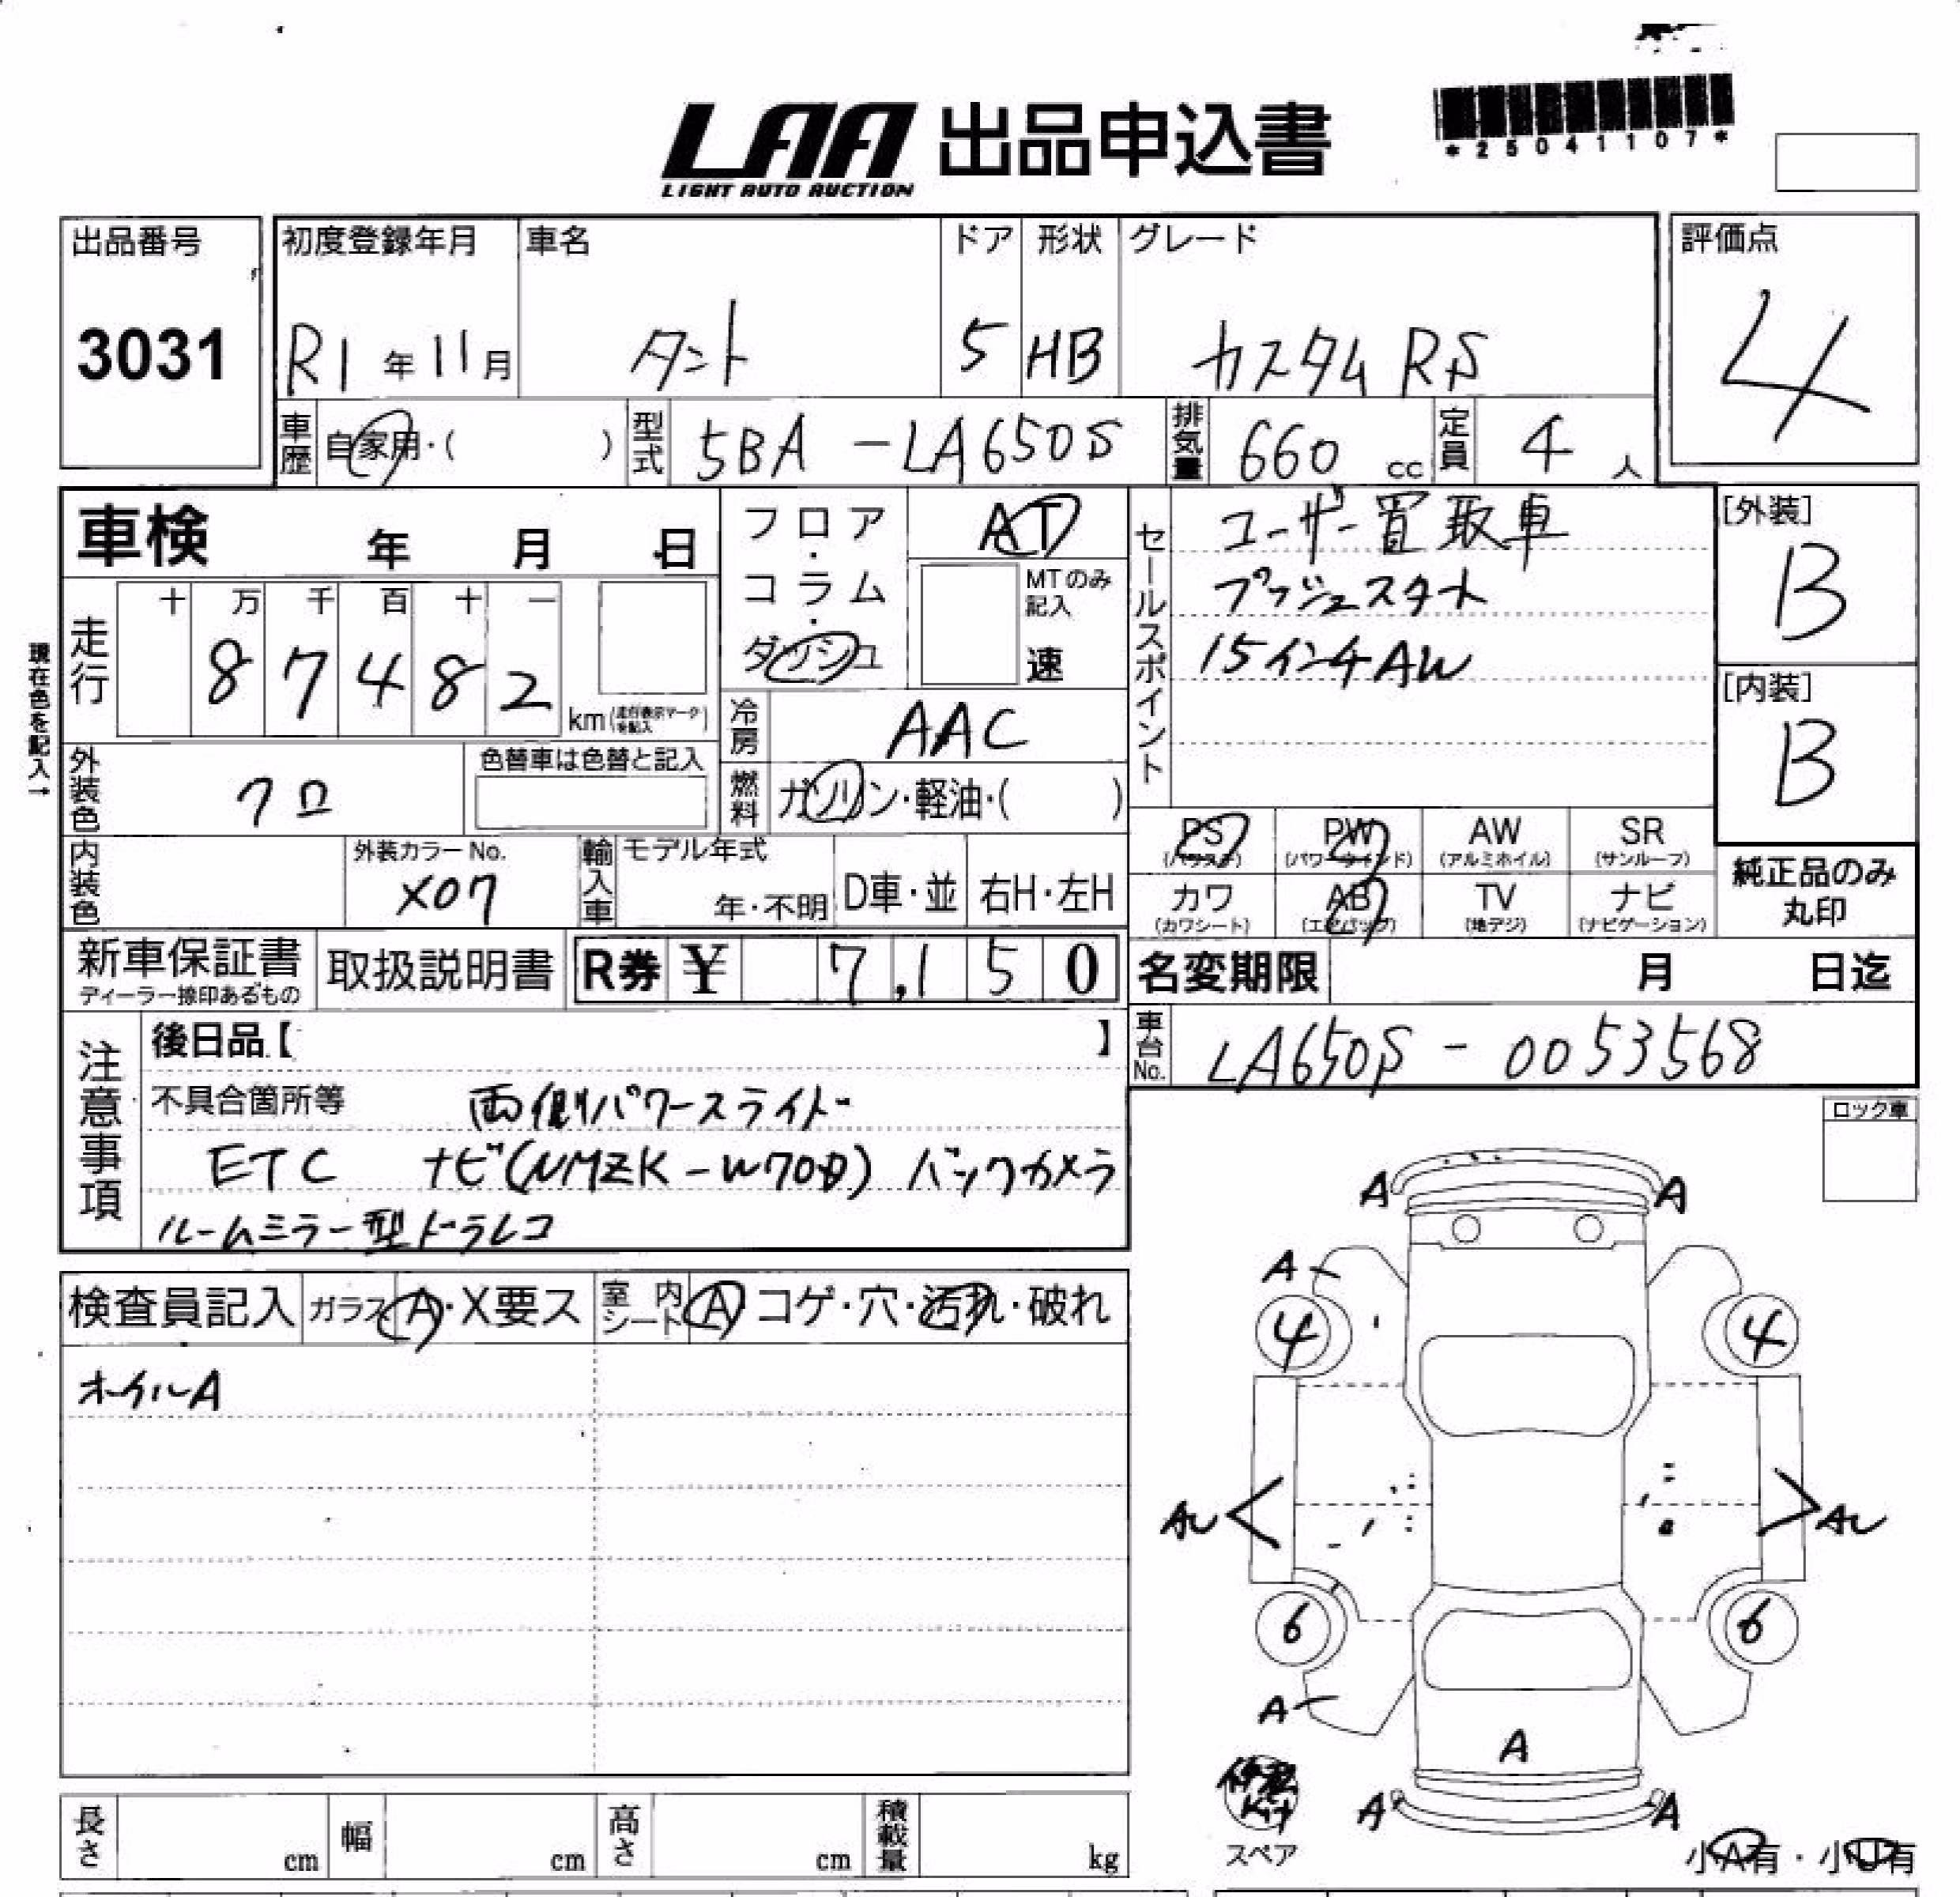 LAA 出品申込書
LIGHT AUTO AUCTION
*25041107*
出品番号
3031
初度登録年月
R1年11月
車名
タント
ドア
5
形状
HB
グレード
カスタムRS
評価点
4
車歴 自家用・( )
型式 5BA-LA650S
排気量 660 cc
定員 4 人
車検 年 月 日
フロア・コラム・ダッシュ
AT
MTのみ記入
速
セールスポイント
ユーザー買取車
プッシュスタート
15インチAW
[外装]
B
[内装]
B
現在色を記入→
走行
十 万 千 百 十 一
87482
km(走行表示マークを記入)
冷房 AAC
燃料 ガソリン・軽油・( )
外装色 クロ
色替車は色替と記入
内装色
外装カラーNo.
X07
輸入車
モデル年式
年・不明
D車・並
右H・左H
PS (パワステ)
PW (パワーウィンド)
AW (アルミホイル)
SR (サンルーフ)
カワ (カワシート)
AB (エアバッグ)
TV (地デジ)
ナビ (ナビゲーション)
純正品のみ
丸印
新車保証書
ディーラー捺印あるもの
取扱説明書
R券 ¥ 7,150
名変期限 月 日迄
車台No. LA650S-0053568
注意事項
後日品【 】
不具合箇所等 両側パワースライド
ETC ナビ(NMZK-W70D) バックカメラ
ルームミラー型ドラレコ
ロック車
検査員記入
ガラス A・X要ス
室内シート A コゲ・穴・汚れ・破れ
オイルA
A A
A
4 4
AU AU
6 6
A
A
A A
スペア
小A有・小U有
長さ cm
幅 cm
高さ cm
積載量 kg